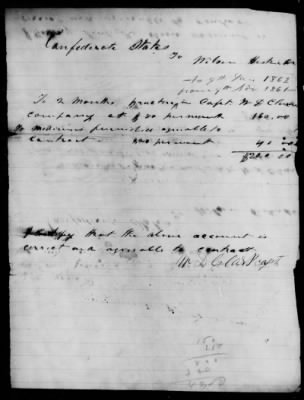 Confederate States
To Wilson
to 9th Jany 1862
from 9th Nov 1861
To 2 months practicing in Capt. W. D.
company at $80 per month 160.00
To medicines furnished agreeable to
contract $20 per month 40 00
$200.00
I certify that the above account is
correct and agreeable to contract
W. D. Capt